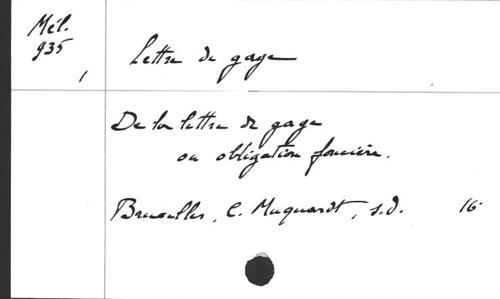 Mél.
935
1
Lettre de gage
De la lettre de gage
ou obligation foncière.
Bruxelles, C. Muquardt, s.d. 16